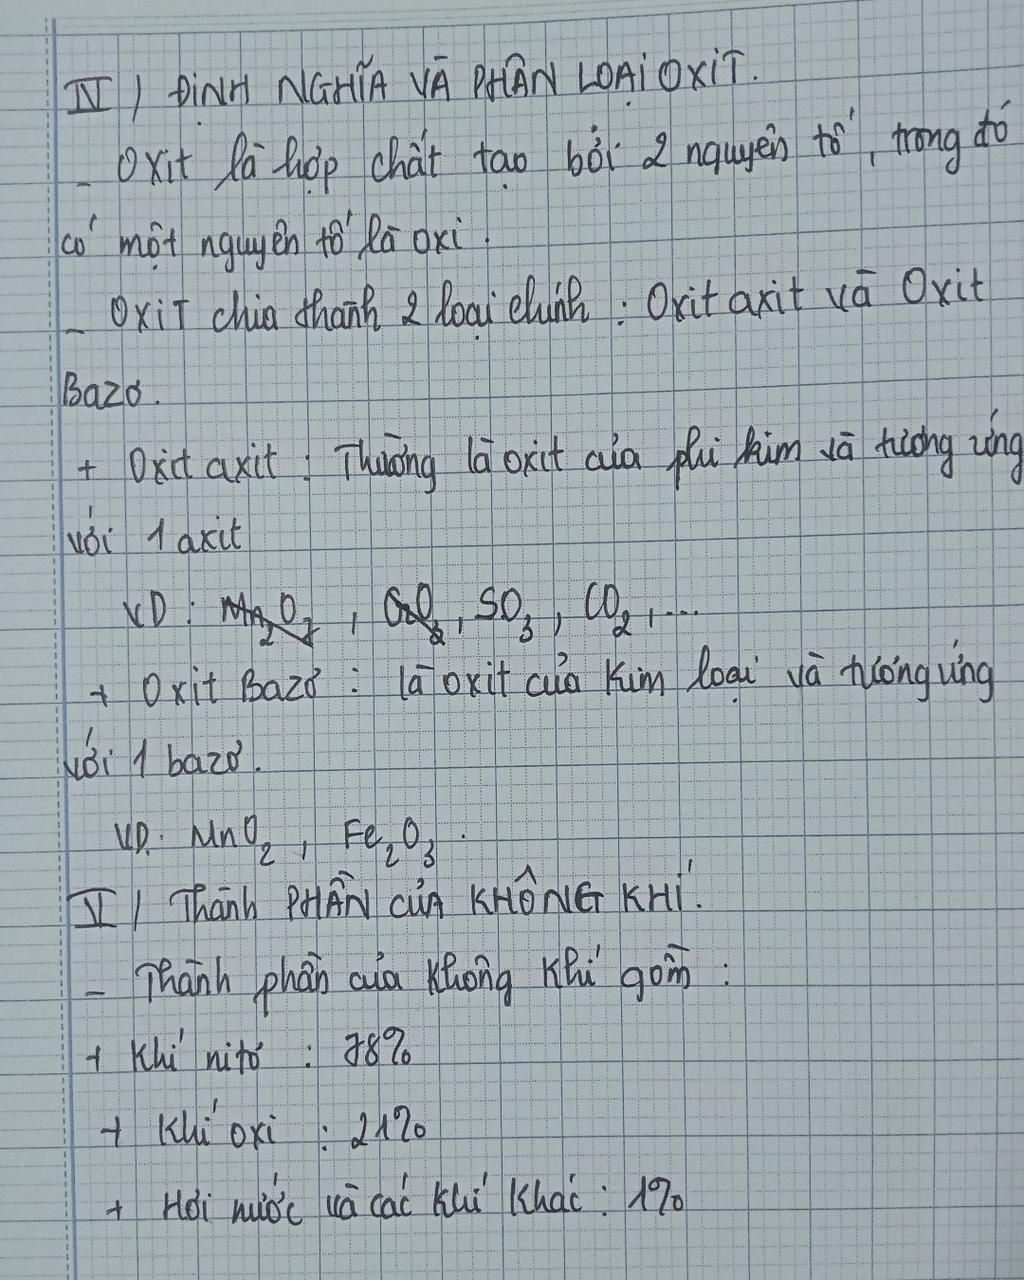 IV / ĐỊNH NGHĨA VÀ PHÂN LOẠI OXIT.
- Oxit là hợp chất tạo bởi 2 nguyên tố, trong đó
có một nguyên tố là oxi.
- OXIT chia thành 2 loại chính : Oxit axit và Oxit
Bazơ.
+ Oxit axit : Thường là oxit của phi kim và tương ứng
với 1 axit
VD : Mn₂O₇, , SO₃, CO₂, ...
+ Oxit Bazơ : là oxit của kim loại và tương ứng
với 1 bazơ.
VD: MnO₂, Fe₂O₃.
V / Thành PHẦN CỦA KHÔNG KHÍ.
- Thành phần của không khí gồm :
+ Khí nitơ : 78%
+ Khí oxi : 21%
+ Hơi nước và các khí khác : 1%